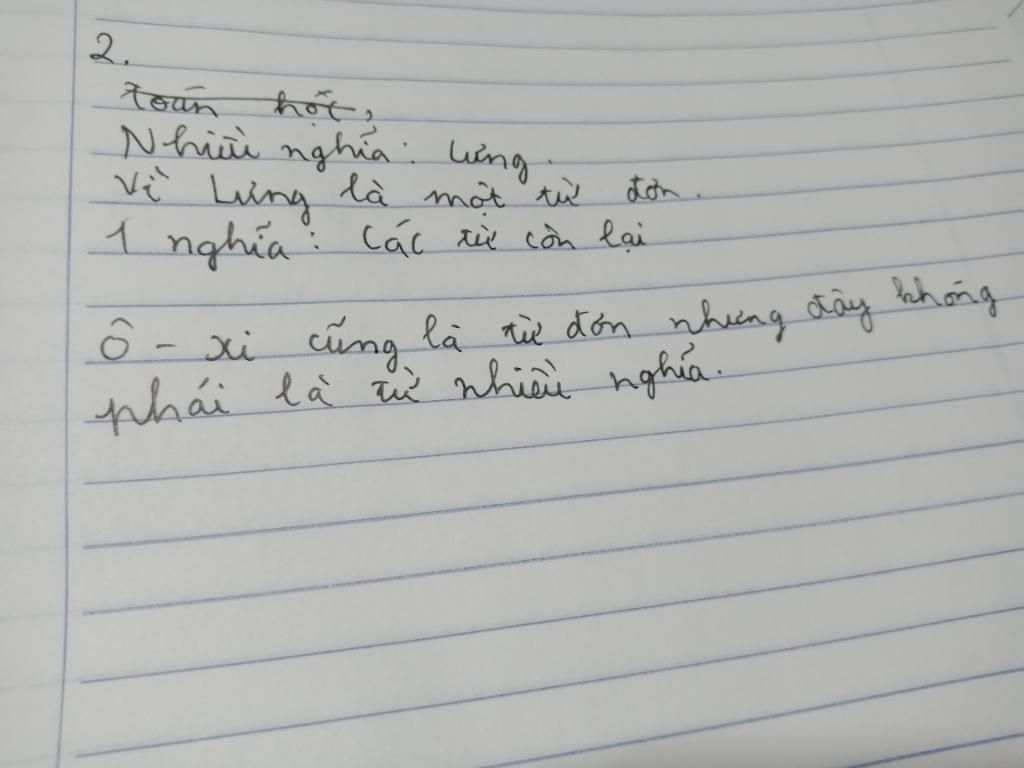 2.
toán học,
Nhiều nghĩa: Lưng.
Vì Lưng là một từ đơn.
1 nghĩa: Các từ còn lại
Ô - xi cũng là từ đơn nhưng đây không
phải là từ nhiều nghĩa.